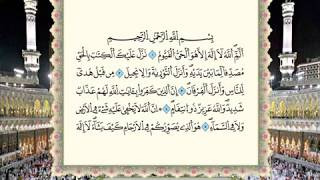 بِسْمِ اللَّهِ الرَّحْمَٰنِ الرَّحِيمِ
الٓمٓ اللَّهُ لَا إِلَٰهَ إِلَّا هُوَ الْحَيُّ الْقَيُّومُ ۝ نَزَّلَ عَلَيْكَ الْكِتَٰبَ بِالْحَقِّ
مُصَدِّقًا لِّمَا بَيْنَ يَدَيْهِ وَأَنزَلَ التَّوْرَىٰةَ وَالْإِنجِيلَ ۝ مِن قَبْلُ هُدًى
لِّلنَّاسِ وَأَنزَلَ الْفُرْقَانَ ۝ إِنَّ الَّذِينَ كَفَرُوا بِـَٔايَٰتِ اللَّهِ لَهُمْ عَذَابٌ
شَدِيدٌ وَاللَّهُ عَزِيزٌ ذُو انتِقَامٍ ۝ إِنَّ اللَّهَ لَا يَخْفَىٰ عَلَيْهِ شَىْءٌ فِى الْأَرْضِ
وَلَا فِى السَّمَآءِ ۝ هُوَ الَّذِى يُصَوِّرُكُمْ فِى الْأَرْحَامِ كَيْفَ يَشَآءُ لَا إِلَٰهَ